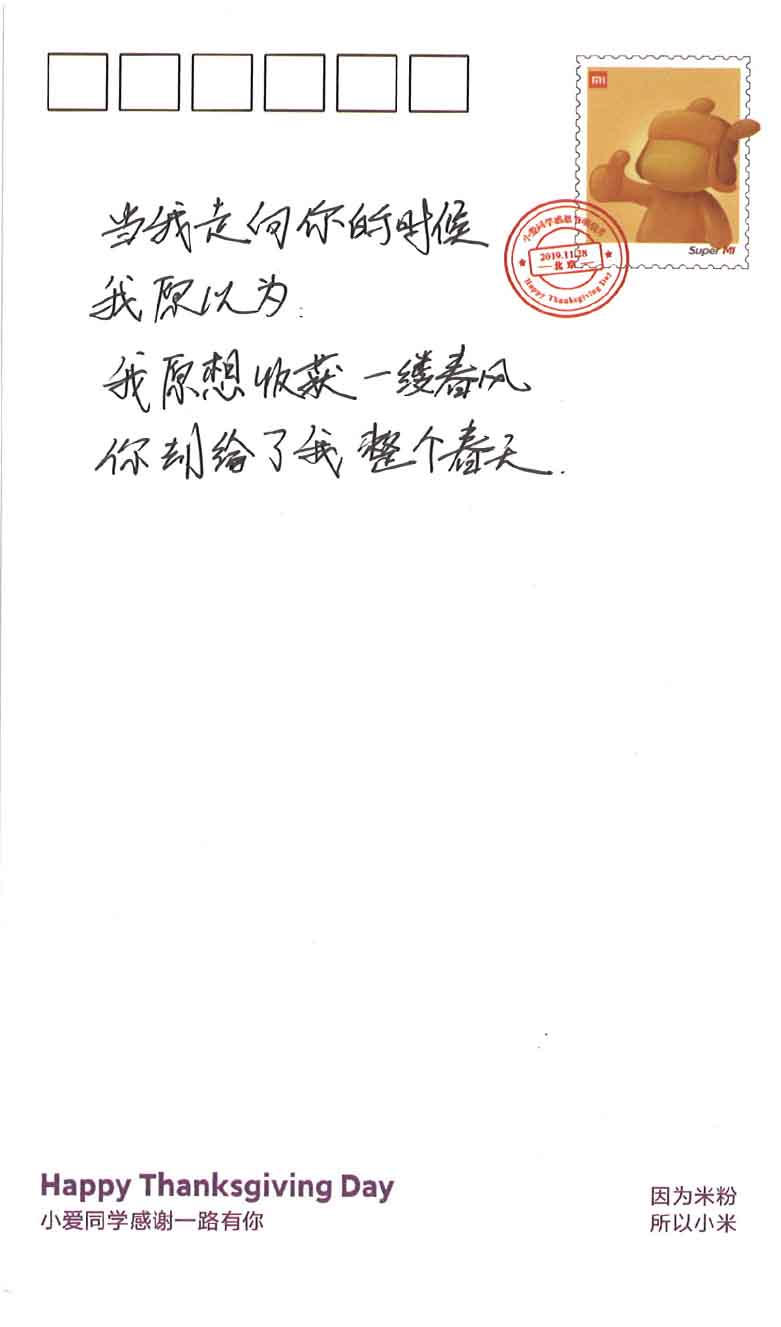 MI
Super MI
小爱同学感恩节
2019.11.28
北京
Happy Thanksgiving Day
当我走向你的时候
我原以为:
我原想收获一缕春风
你却给了我整个春天.
Happy Thanksgiving Day
小爱同学感谢一路有你
因为米粉
所以小米